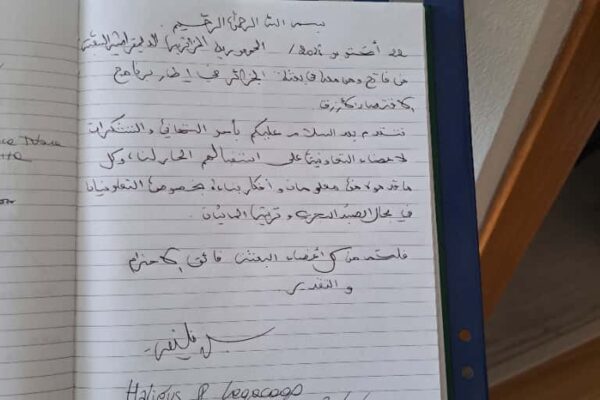 بسم الله الرحمن الرحيم
22 أكتوبر / الجمهورية الجزائرية الديمقراطية الشعبية
بعثة الجزائر في إطار برنامج
الاقتصاد الأزرق
نتقدم بعد السلام عليكم بأسمى التحايا والتشكرات
لأعضاء التعاونية على استقبالهم الحار لنا، وكل
ما قدموه لنا معلومات وأفكار بناءة بخصوص التعاونيات
في مجال الصيد البحري وتربية المائيات.
فلكم من كل أعضاء البعثة فائق الاحترام
والتقدير.